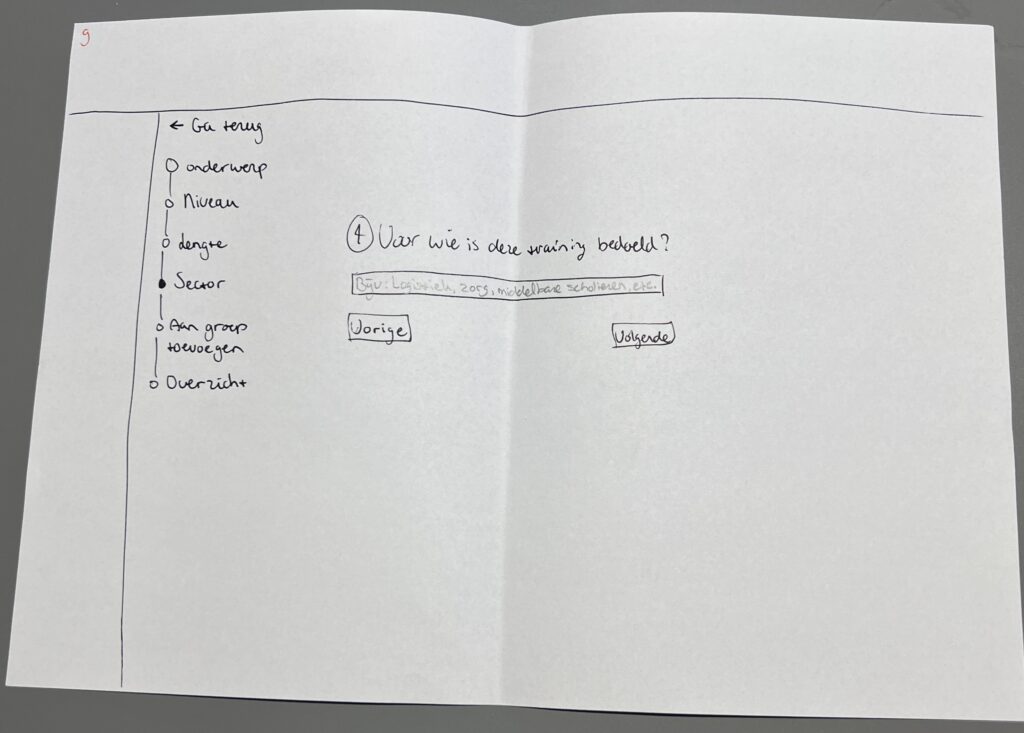 9
← Ga terug
onderwerp
Niveau
lengte
Sector
Aan groep
toevoegen
Overzicht
4 Voor wie is deze training bedoeld?
Bijv: Logistiek, zorg, middelbare scholieren, etc.
Vorige
Volgende